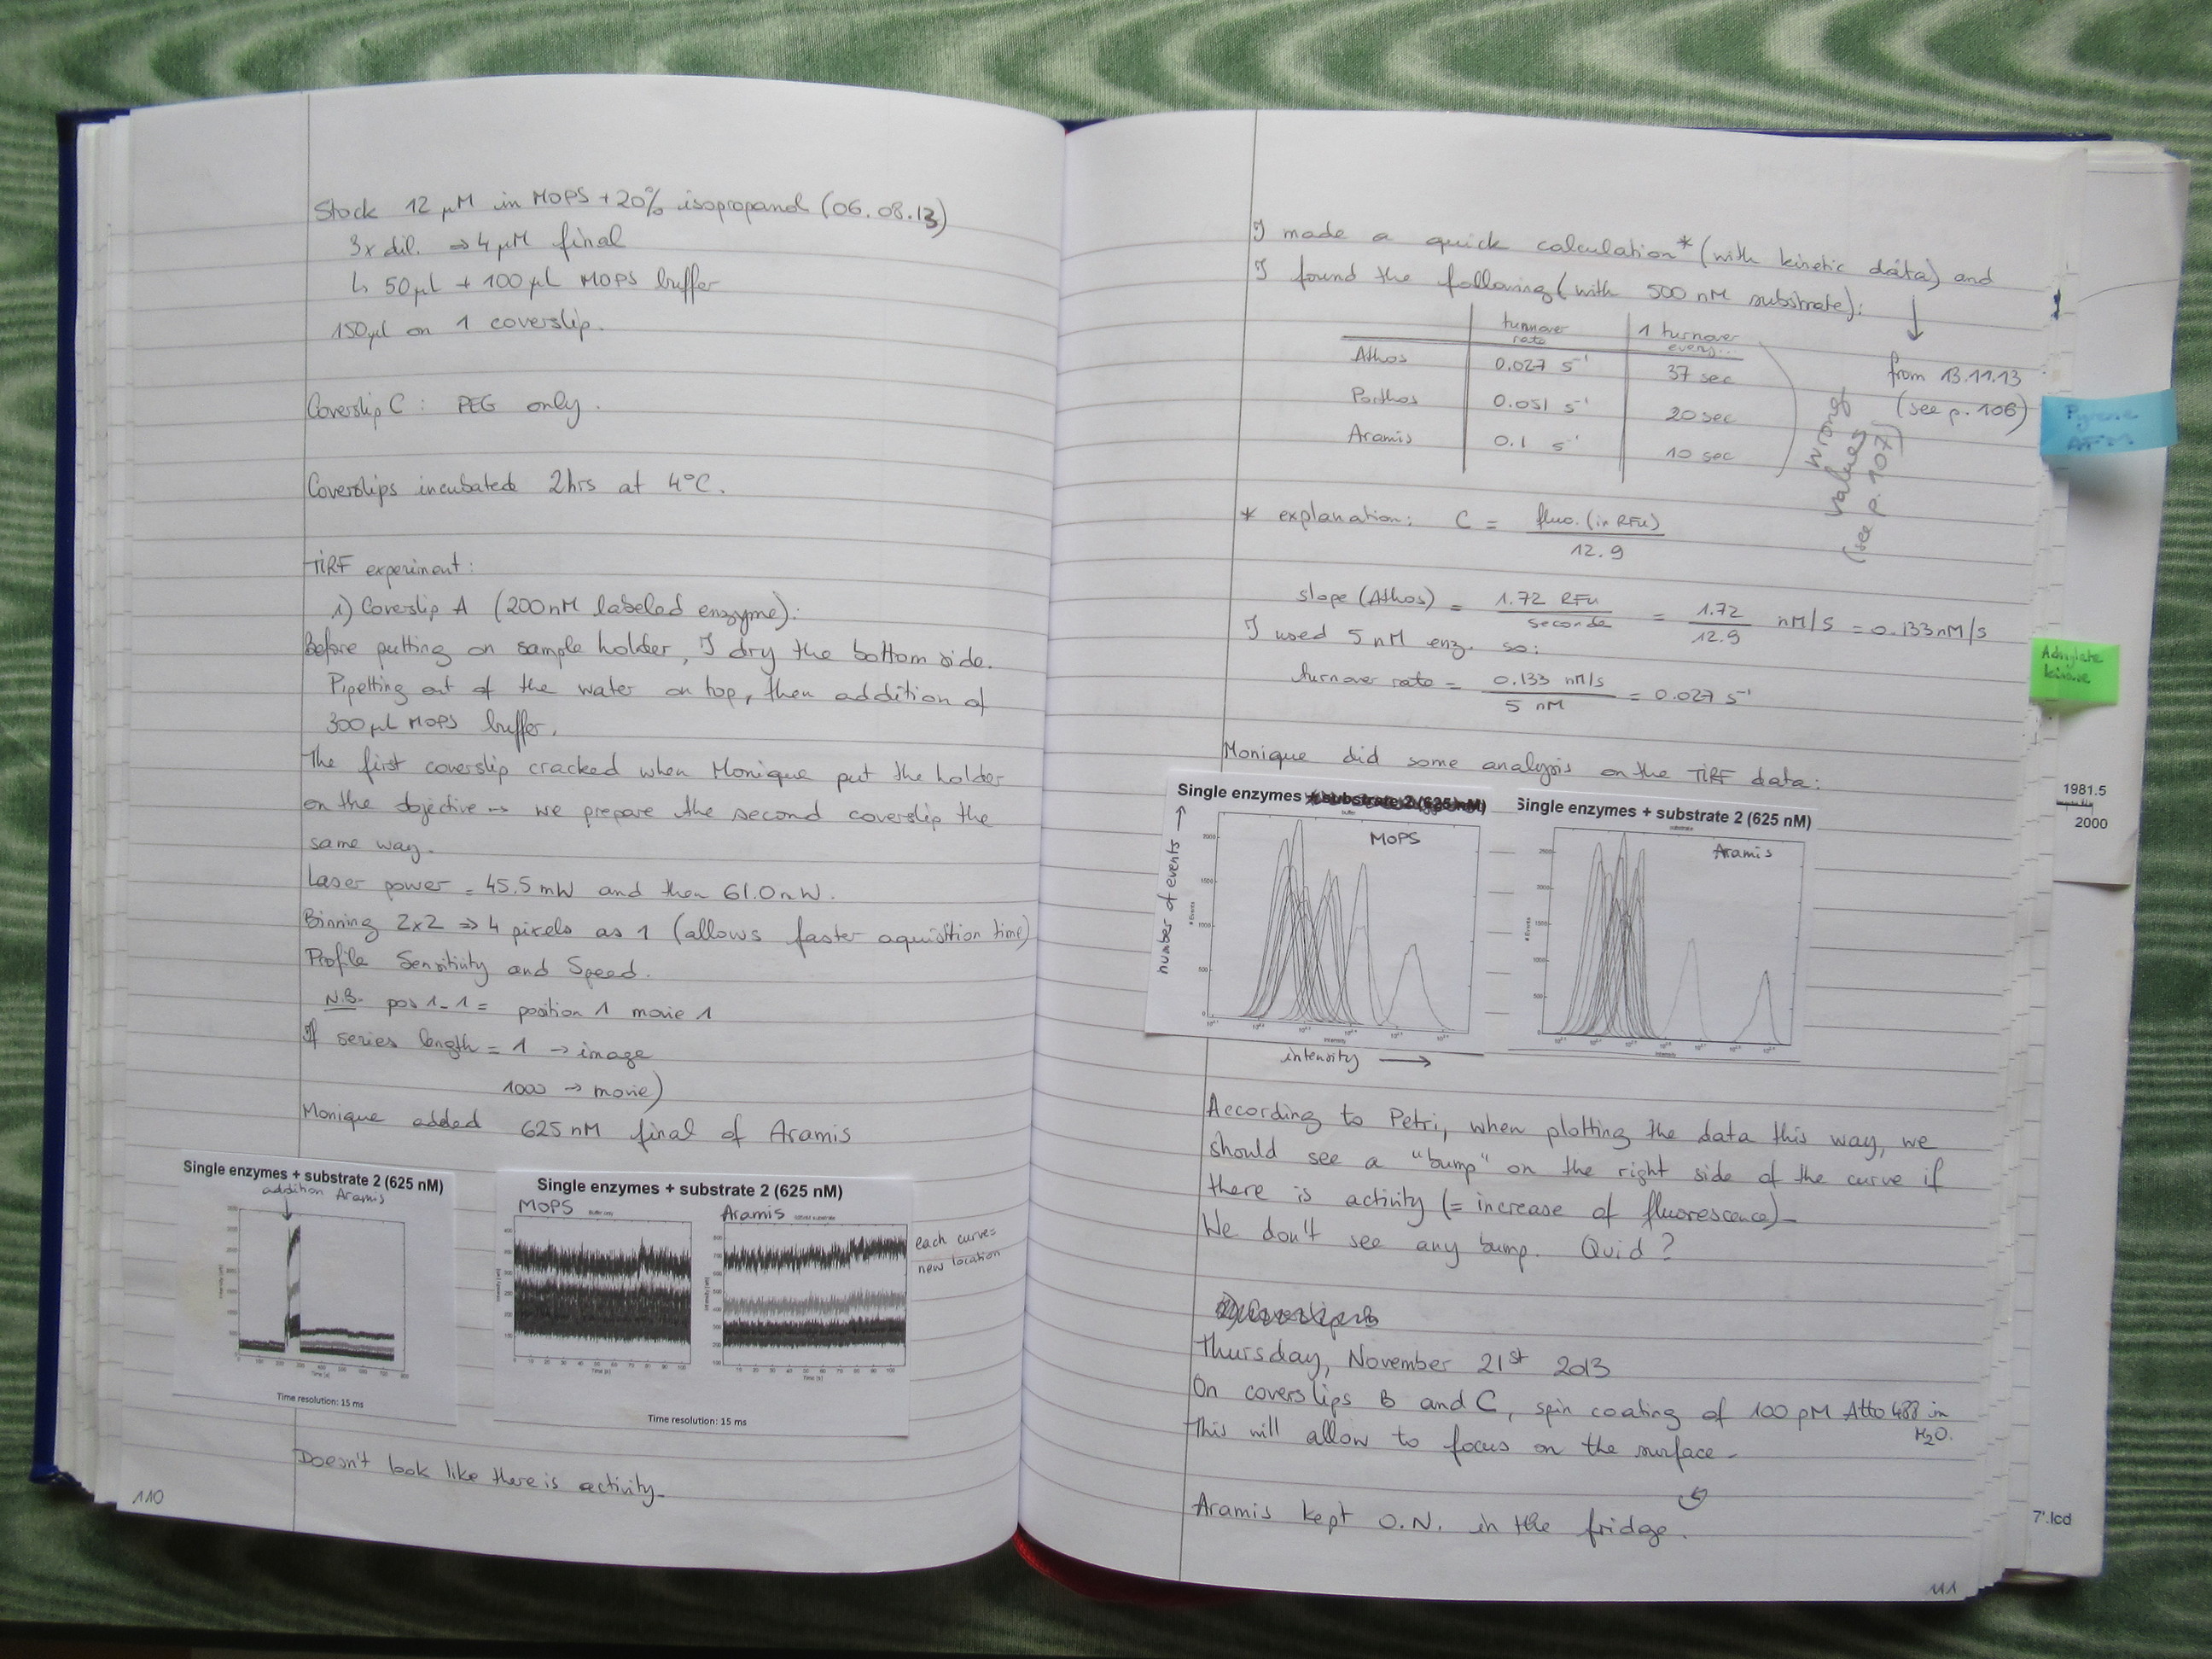 Stock 12 µM in MOPS + 20% isopropanol (06.08.13)
3x dil. ⇒ 4 µM final
↳ 50µL + 100µL MOPS buffer
150µL on 1 coverslip.
Coverslip C : PEG only.
Coverslips incubated 2hrs at 4°C.
TIRF experiment:
1) Coverslip A (200nM labeled enzyme):
Before putting on sample holder, I dry the bottom side.
Pipetting out of the water on top, then addition of
300µL MOPS buffer.
The first coverslip cracked when Monique put the holder
on the objective → we prepare the second coverslip the
same way.
Laser power = 45.5 mW and then 61.0 mW.
Binning 2x2 ⇒ 4 pixels as 1 (allows faster aquisition time)
Profile Sensitivity and Speed.
N.B. pos 1_1 = position 1 movie 1
If series length = 1 → image
1000 → movie)
Monique added 625 nM final of Aramis
Single enzymes + substrate 2 (625 nM)
addition Aramis
Time resolution: 15 ms
Single enzymes + substrate 2 (625 nM)
MOPS
Aramis
each curve=
new location
Time resolution: 15 ms
Doesn't look like there is activity.
110
I made a quick calculation* (with kinetic data) and
I found the following (with 500 nM substrate):
turnover rate | 1 turnover every...
Athos 0.027 s⁻¹ 37 sec
Porthos 0.051 s⁻¹ 20 sec
Aramis 0.1 s⁻¹ 10 sec
wrong
values
(see p. 107)
from 13.11.13
(see p. 106)
* explanation: C = fluo. (in RFU) / 12.9
slope (Athos) = 1.72 RFU / seconde = 1.72 / 12.9 nM/s = 0.133 nM/s
I used 5 nM enz. so:
turnover rate = 0.133 nM/s / 5 nM = 0.027 s⁻¹
Monique did some analysis on the TIRF data:
Single enzymes + substrate 2 (625 nM)
MOPS
number of events
intensity
Single enzymes + substrate 2 (625 nM)
Aramis
According to Petri, when plotting the data this way, we
should see a "bump" on the right side of the curve if
there is activity (= increase of fluorescence).
We don't see any bump. Quid ?
Thursday, November 21st 2013
On coverslips B and C, spin coating of 100 pM Atto 488 in
H₂O.
This will allow to focus on the surface.
Aramis kept O.N. in the fridge.
111
Pyrene
AFM
Adenylate
kinase
1981.5
2000
7'.lcd